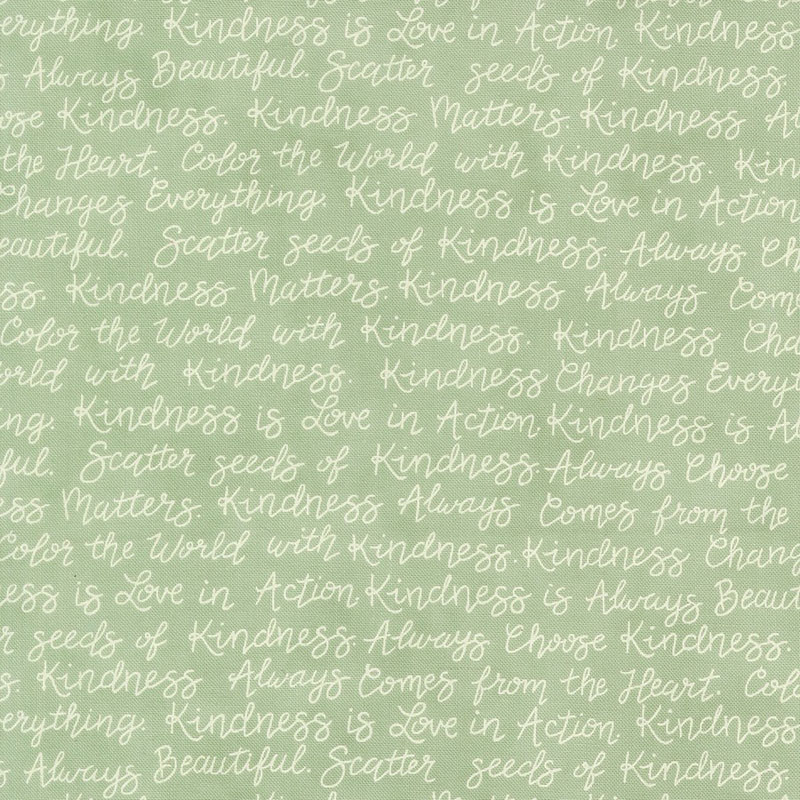 erything. Kindness is Love in Action. Kindness
Always Beautiful. Scatter seeds of Kindness.
ose Kindness. Kindness Matters. Kindness Al
the Heart. Color the World with Kindness. Kin
Changes Everything. Kindness is Love in Action
eautiful. Scatter seeds of Kindness. Always Ch
ss. Kindness Matters. Kindness Always Come
Color the World with Kindness. Kindness Cha
orld with Kindness. Kindness Changes Everyt
ng. Kindness is Love in Action. Kindness is Al
ful. Scatter seeds of Kindness. Always Choose
ss Matters. Kindness Always Comes from the
Color the World with Kindness. Kindness Chang
ess is Love in Action. Kindness is Always Beaut
r seeds of Kindness. Always Choose Kindness.
s. Kindness Always Comes from the Heart. Colo
erything. Kindness is Love in Action. Kindness
Always Beautiful. Scatter seeds of Kindness.